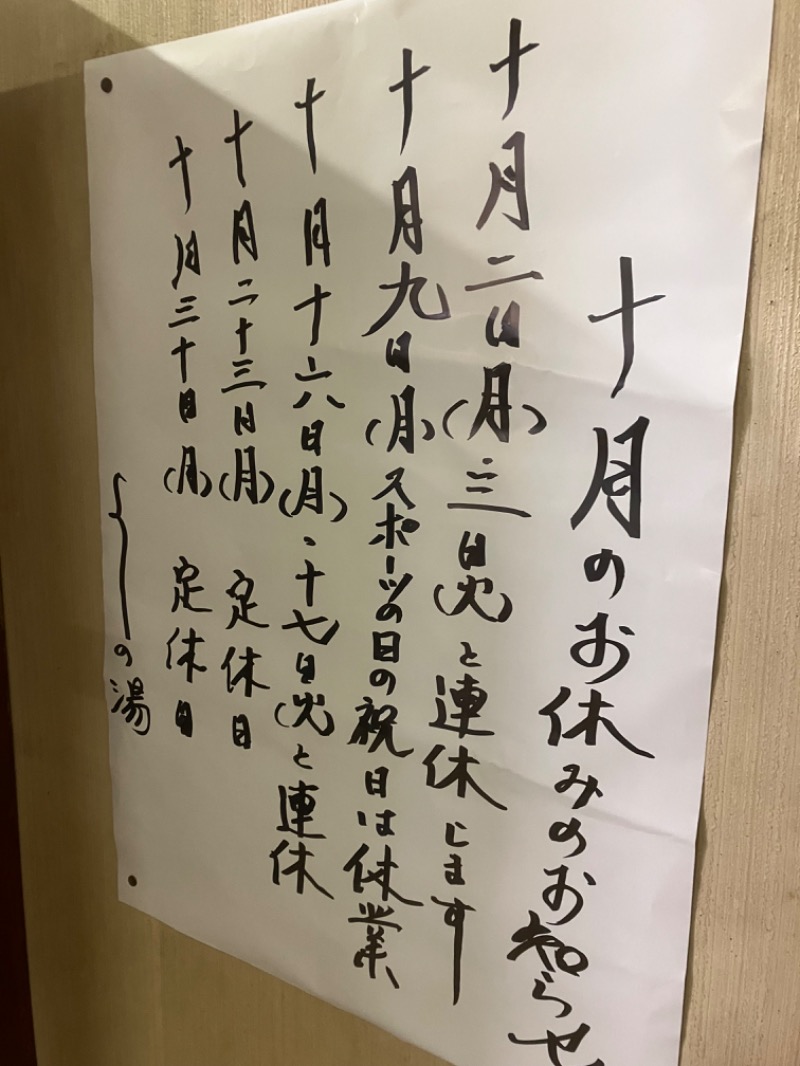 十月のお休みのお知らせ
十月二日(月)三日(火)と連休します
十月九日(月)スポーツの日の祝日は休業
十月十六日(月)、十七日(火)と連休
十月二十三日(月) 定休日
十月三十日(月) 定休日
の湯